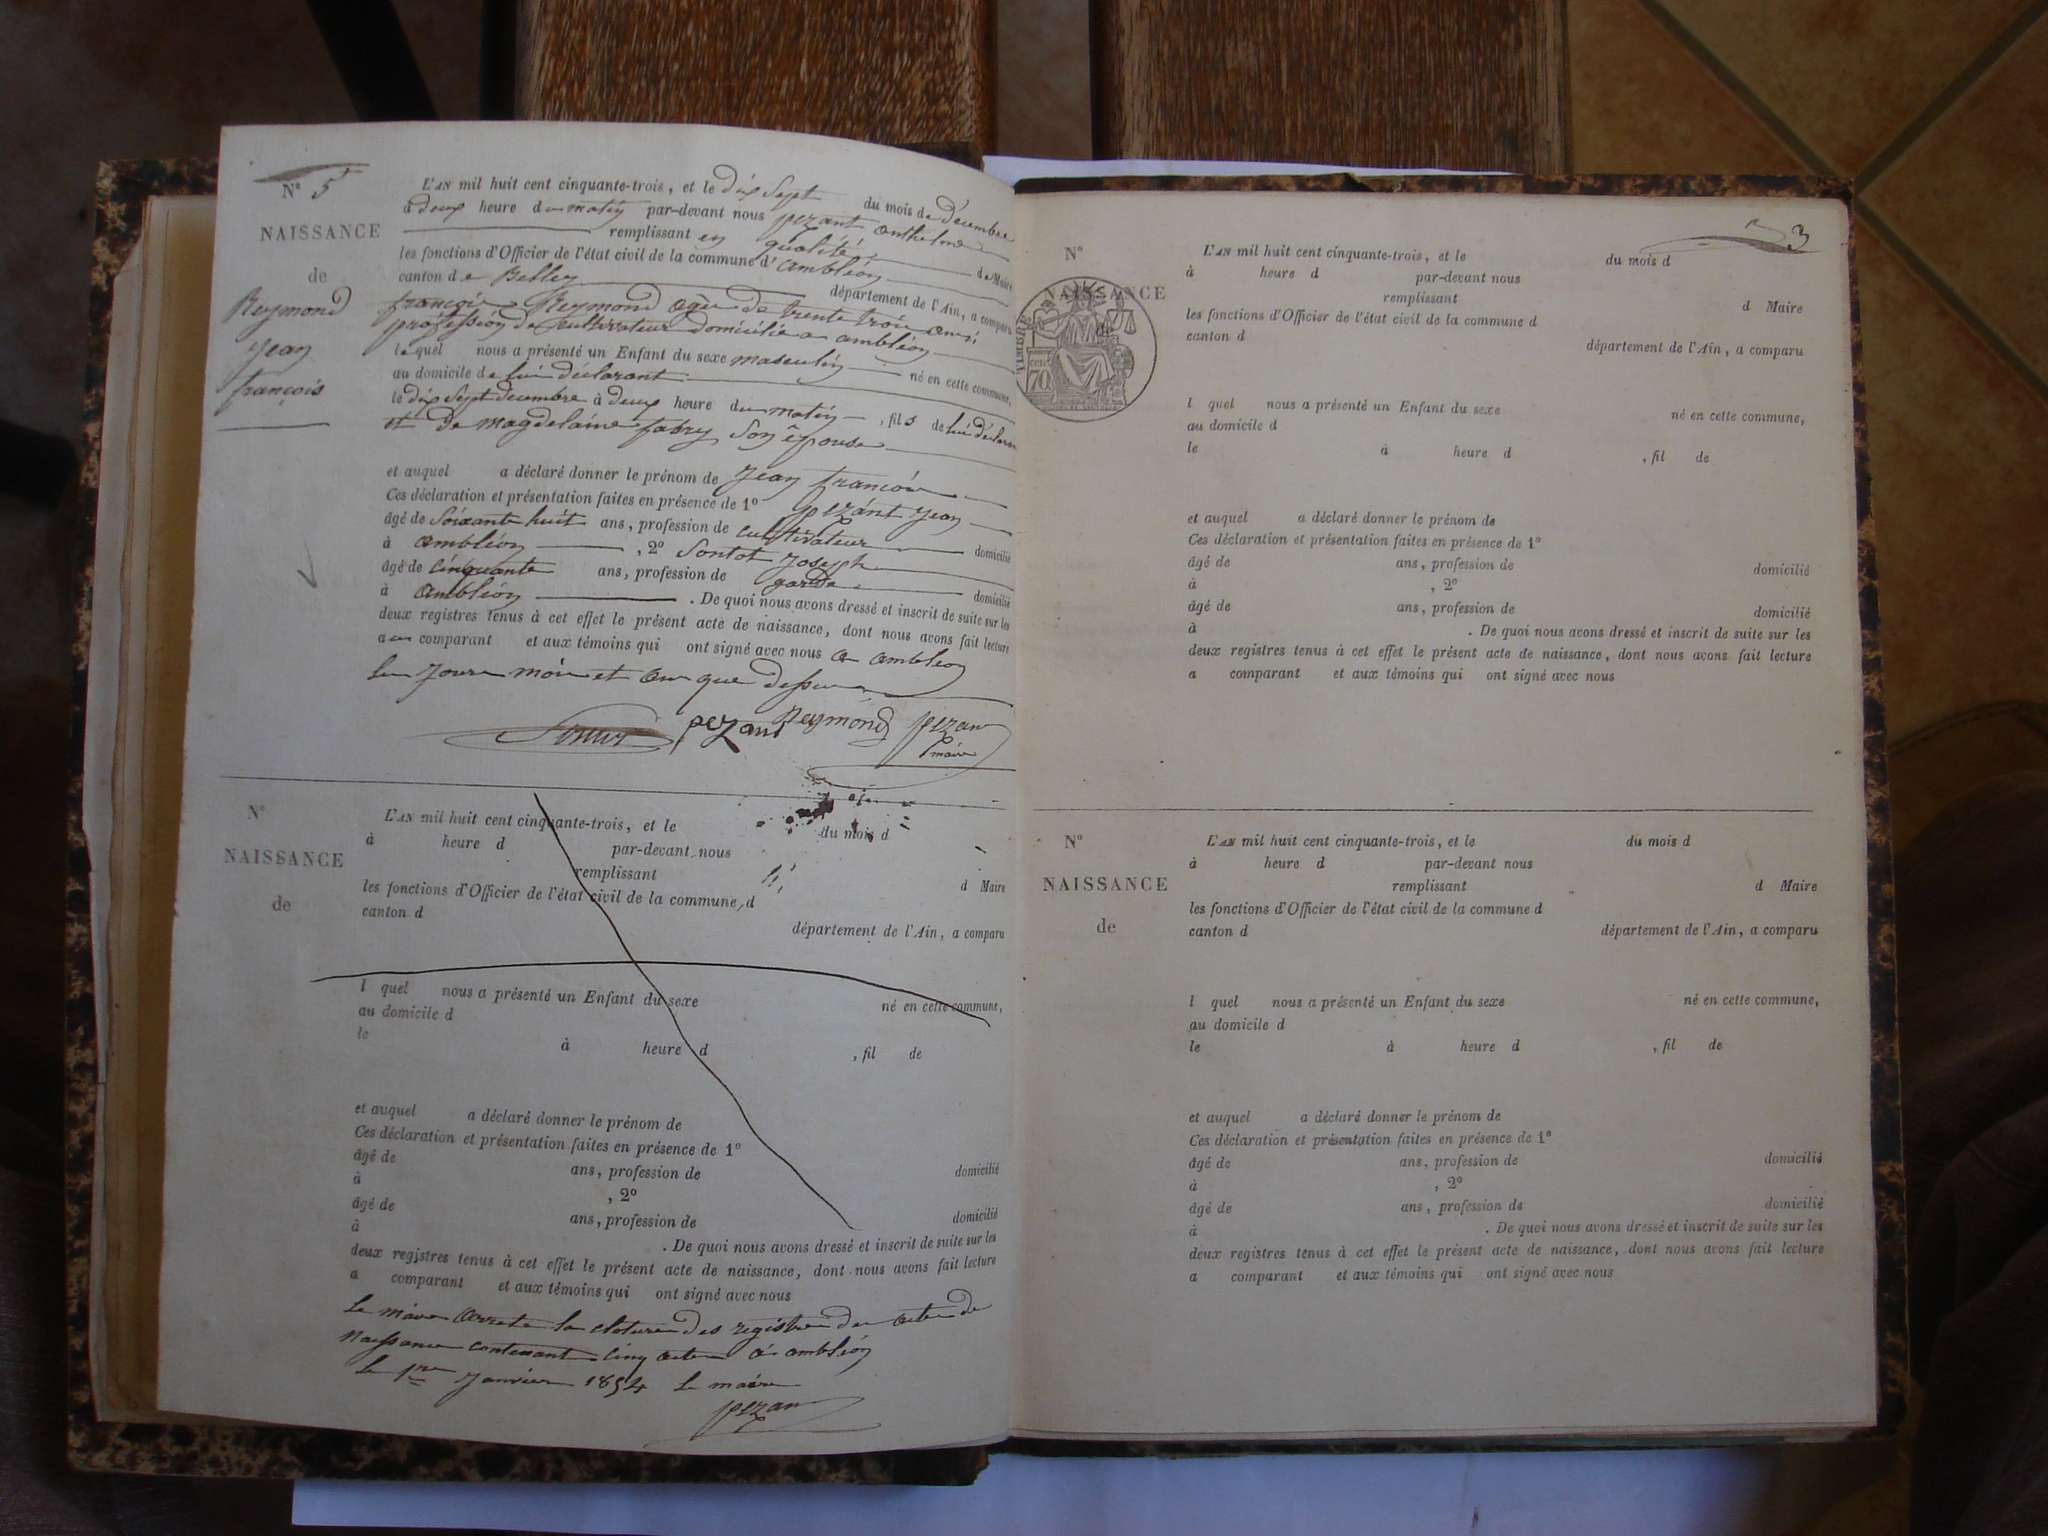 Nº 5
NAISSANCE
de
Reymond
Jean
françois
L'AN mil huit cent cinquante-trois, et le dix Sept du mois de Décembre
à deux heure du matin par-devant nous pezant anthelme
remplissant en qualité de Maire
les fonctions d'Officier de l'état civil de la commune d'ambléon
canton de Belley département de l'Ain, a comparu
françois Reymond age de trente trois ans
profession de cultivateur domicilié a ambléon
lequel nous a présenté un Enfant du sexe masculin né en cette commune,
au domicile de lui déclarant
le dix Sept decembre à deux heure du matin, fils de lui déclarant
et de magdelaine fabry Son épouse
et auquel a déclaré donner le prénom de Jean françois
Ces déclaration et présentation faites en présence de 1º pezant Jean
âgé de Soixante huit ans, profession de cultivateur domicilié
à ambléon, 2º Sontot Joseph
âgé de cinquante ans, profession de garde domicilié
à ambléon. De quoi nous avons dressé et inscrit de suite sur les
deux registres tenus à cet effet le présent acte de naissance, dont nous avons fait lecture
au comparant et aux témoins qui ont signé avec nous a ambléon
les Jour mois et an que dessus
pezant Reymond pezant
maire
Nº
NAISSANCE
de
L'AN mil huit cent cinquante-trois, et le du mois d
à heure d par-devant nous
remplissant d Maire
les fonctions d'Officier de l'état civil de la commune d
canton d
département de l'Ain, a comparu
l quel nous a présenté un Enfant du sexe né en cette commune,
au domicile d
le à heure d , fil de
et auquel a déclaré donner le prénom de
Ces déclaration et présentation faites en présence de 1º
âgé de ans, profession de domicilié
à , 2º
âgé de ans, profession de domicilié
à . De quoi nous avons dressé et inscrit de suite sur les
deux registres tenus à cet effet le présent acte de naissance, dont nous avons fait lecture
a comparant et aux témoins qui ont signé avec nous
Le maire arrete la cloture des registre des actes de
Naissance contenant cinq actes a ambléon
Le 1er Janvier 1854 Le maire
pezant
3
Nº
NAISSANCE
TIMBRE
cen
70
L'AN mil huit cent cinquante-trois, et le du mois d
à heure d par-devant nous
remplissant d Maire
les fonctions d'Officier de l'état civil de la commune d
canton d
département de l'Ain, a comparu
l quel nous a présenté un Enfant du sexe né en cette commune,
au domicile d
le à heure d , fil de
et auquel a déclaré donner le prénom de
Ces déclaration et présentation faites en présence de 1º
âgé de ans, profession de domicilié
à , 2º
âgé de ans, profession de domicilié
à . De quoi nous avons dressé et inscrit de suite sur les
deux registres tenus à cet effet le présent acte de naissance, dont nous avons fait lecture
a comparant et aux témoins qui ont signé avec nous
Nº
NAISSANCE
de
L'AN mil huit cent cinquante-trois, et le du mois d
à heure d par-devant nous
remplissant d Maire
les fonctions d'Officier de l'état civil de la commune d
canton d département de l'Ain, a comparu
l quel nous a présenté un Enfant du sexe né en cette commune,
au domicile d
le à heure d , fil de
et auquel a déclaré donner le prénom de
Ces déclaration et présentation faites en présence de 1º
âgé de ans, profession de domicilié
à , 2º
âgé de ans, profession de domicilié
à . De quoi nous avons dressé et inscrit de suite sur les
deux registres tenus à cet effet le présent acte de naissance, dont nous avons fait lecture
a comparant et aux témoins qui ont signé avec nous